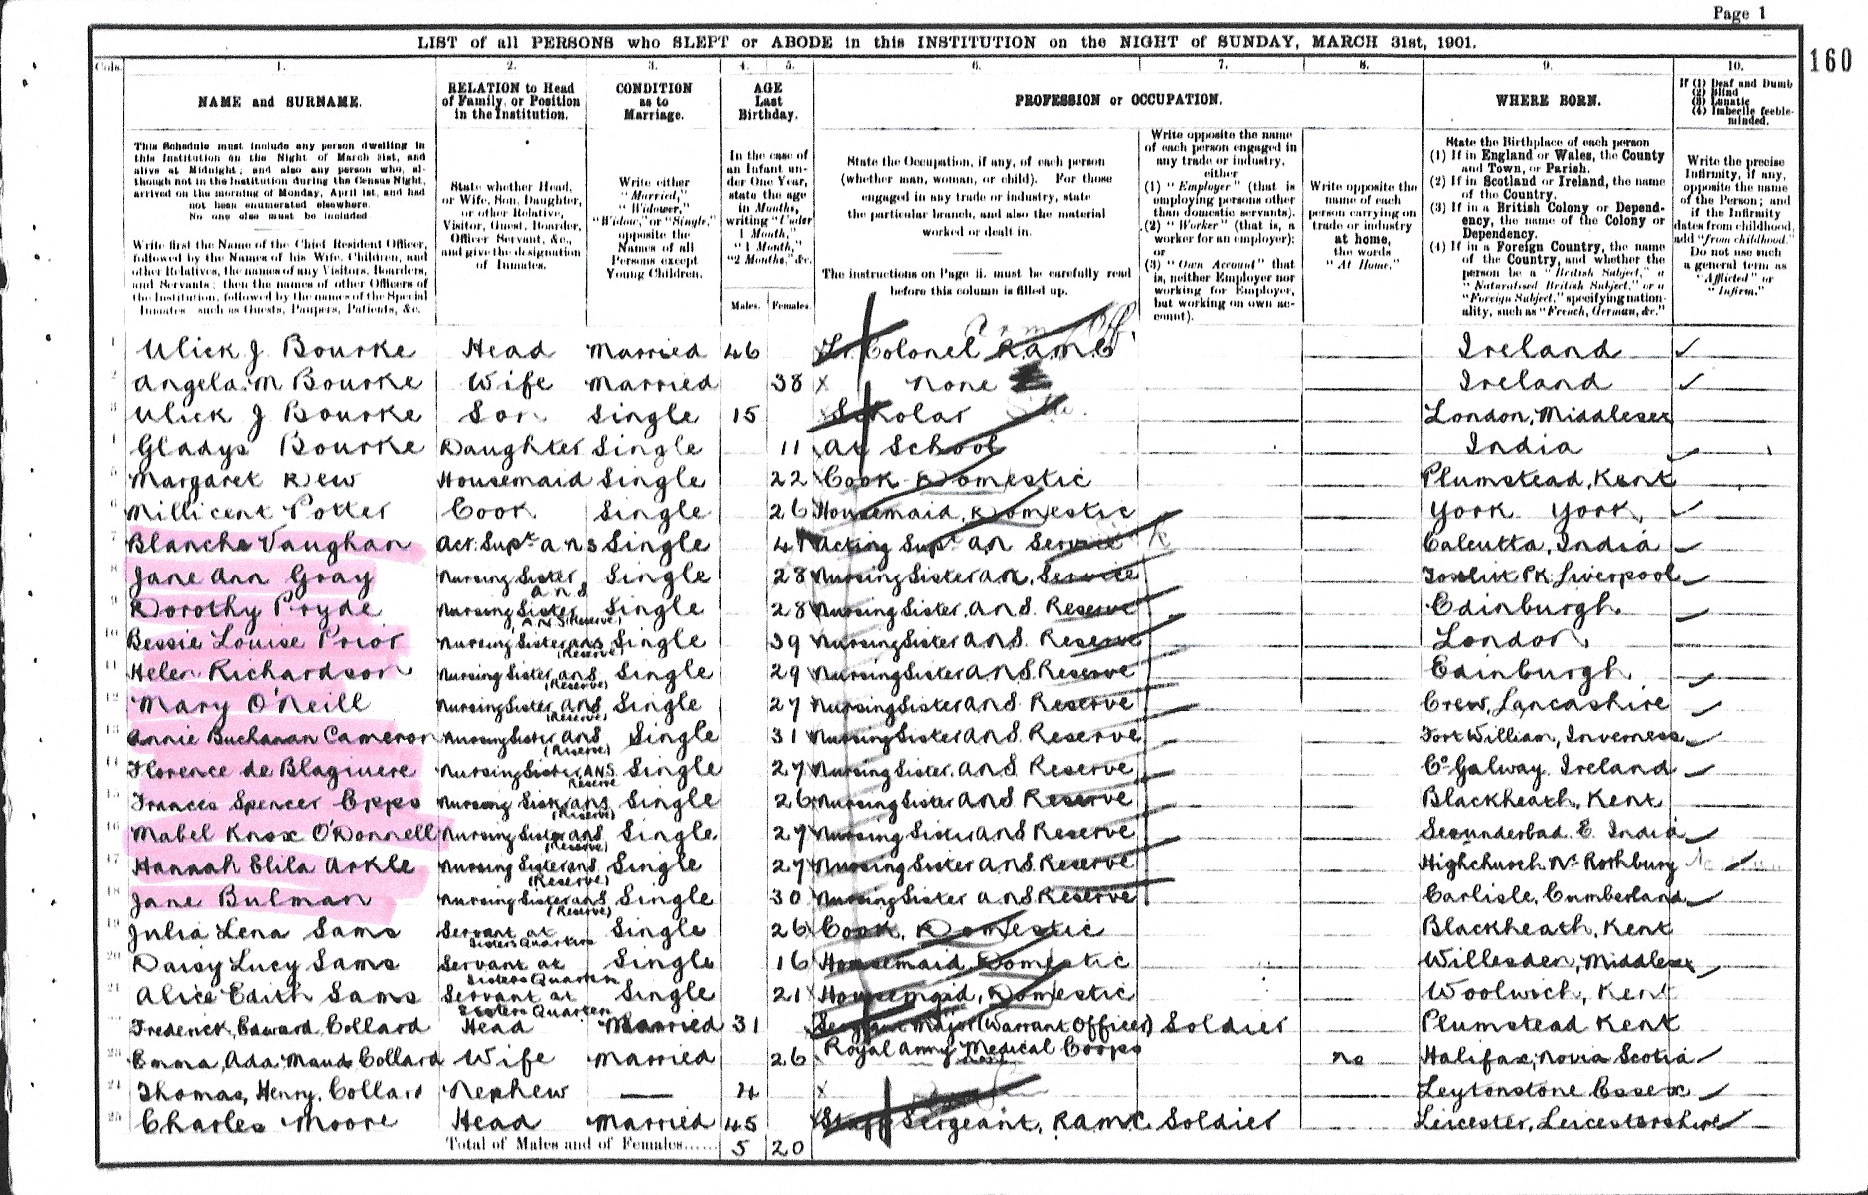 Page 1
LIST of all PERSONS who SLEPT or ABODE in this INSTITUTION on the NIGHT of SUNDAY, MARCH 31st, 1901.
160
Cols. 1. 2. 3. 4. 5. 6. 7. 8. 9. 10.
NAME and SURNAME.
This Schedule must include any person dwelling in
this Institution on the Night of March 31st, and
alive at Midnight; and also any person who, al-
though not in the Institution during the Census Night,
arrived on the morning of Monday, April 1st, and had
not been enumerated elsewhere.
No one else must be included
Write first the Name of the Chief Resident Officer,
followed by the Names of his Wife, Children, and
other Relatives, the names of any Visitors, Boarders,
and Servants; then the names of other Officers of
the Institution, followed by the names of the Special
Inmates such as Guests, Paupers, Patients, &c.
RELATION to Head
of Family, or Position
in the Institution.
State whether Head,
or Wife, Son, Daughter,
or other Relative,
Visitor, Guest, Boarder,
Officer Servant, &c.,
and give the designation
of Inmates.
CONDITION
as to
Marriage.
Write either
"Married,"
"Widower,"
"Widow," or "Single,"
opposite the
Names of all
Persons except
Young Children.
AGE
Last
Birthday.
In the case of
an Infant un-
der One Year,
state the age
in Months,
writing "Under
1 Month,"
"1 Month,"
"2 Months," &c.
Males. Females.
PROFESSION or OCCUPATION.
State the Occupation, if any, of each person
(whether man, woman, or child). For those
engaged in any trade or industry, state
the particular branch, and also the material
worked or dealt in.
The instructions on Page ii. must be carefully read
before this column is filled up.
Write opposite the name
of each person engaged in
any trade or industry,
either
(1) "Employer" (that is
employing persons other
than domestic servants).
(2) "Worker" (that is, a
worker for an employer);
or
(3) "Own Account" that
is, neither Employer nor
working for Employer,
but working on own ac-
count).
Write opposite the
name of each
person carrying on
trade or industry
at home,
the words
"At Home."
WHERE BORN.
State the Birthplace of each person
(1) If in England or Wales, the County
and Town, or Parish.
(2) If in Scotland or Ireland, the name
of the Country.
(3) If in a British Colony or Depend-
ency, the name of the Colony or
Dependency.
(4) If in a Foreign Country, the name
of the Country, and whether the
person be a "British Subject," a
"Naturalised British Subject," or a
"Foreign Subject," specifying nation-
ality, such as "French, German, &c."
If (1) Deaf and Dumb
(2) Blind
(3) Lunatic
(4) Imbecile feeble-
minded.
Write the precise
Infirmity, if any,
opposite the name
of the Person; and
if the Infirmity
dates from childhood,
add "from childhood."
Do not use such
a general term as
"Afflicted" or
"Infirm."
1 Ulick J Bourke Head Married 46 Lt. Colonel R.A.M.C Ireland
2 Angela M Bourke Wife Married 38 None Ireland
3 Ulick J Bourke Son Single 15 Scholar London, Middlesex
4 Gladys Bourke Daughter Single 11 At School India
5 Margaret Rew Housemaid Single 22 Cook Domestic Plumstead, Kent
6 Millicent Potter Cook Single 26 Housemaid, Domestic York York,
7 Blanche Vaughan Act. Supt. A N S Single 41 Acting Supt. A N Service Calcutta, India
8 Jane Ann Gray Nursing Sister A N S Single 28 Nursing Sister A.N. Service Toxlith Pk. Liverpool
9 Dorothy Pryde Nursing Sister A.N.S (Reserve) Single 28 Nursing Sister, A.N.S. Reserve Edinburgh.
10 Bessie Louise Prior Nursing Sister ANS (Reserve) Single 39 Nursing Sister A.N.S. Reserve London
11 Helen Richardson Nursing Sister ANS (Reserve) Single 29 Nursing Sister A.N.S Reserve Edinburgh
12 Mary O'Neill Nursing Sister ANS (Reserve) Single 27 Nursing Sister A.N.S Reserve Crew, Lancashire
13 Annie Buchanan Cameron Nursing Sister ANS (Reserve) Single 31 Nursing Sister A.N.S. Reserve Fort William, Inverness
14 Florence de Blaquiere Nursing Sister ANS Reserve Single 27 Nursing Sister, A.N.S. Reserve Co Galway. Ireland
15 Frances Spencer Epps Nursing Sister ANS (Reserve) Single 26 Nursing Sister A.N.S Reserve Blackheath, Kent
16 Mabel Knox O'Donnell Nursing Sister ANS (Reserve) Single 27 Nursing Sister A.N.S Reserve Secunderbad. E. India
17 Hannah Elila Arkle Nursing Sister ANS (Reserve) Single 27 Nursing Sister A.N.S Reserve Highchurch Nr Rothbury
18 Jane Bulman Nursing Sister ANS (Reserve) Single 30 Nursing Sister A N S Reserve Carlisle, Cumberland
19 Julia Lena Sams Servant at Sisters Quarters Single 26 Cook, Domestic Blackheath, Kent
20 Daisy Lucy Sams Servant at Sisters Quarters Single 16 Housemaid Domestic Willesden, Middlesex
21 Alice Edith Sams Servant at Sisters Quarters Single 21 Housemaid, Domestic Woolwich, Kent
22 Frederick, Edward, Collard Head Married 31 Sergeant Major (Warrant Officer) Soldier Plumstead Kent
Royal Army Medical Corps
23 Emma, Ada, Maud Collard Wife Married 26 no Halifax, Novia Scotia
24 Thomas, Henry, Collard Nephew — 4 Leytonstone Essex
25 Charles Moore Head Married 45 Staff Sergeant, R.A.M.C. Soldier Leicester, Leicestershire
Total of Males and of Females...... 5 20